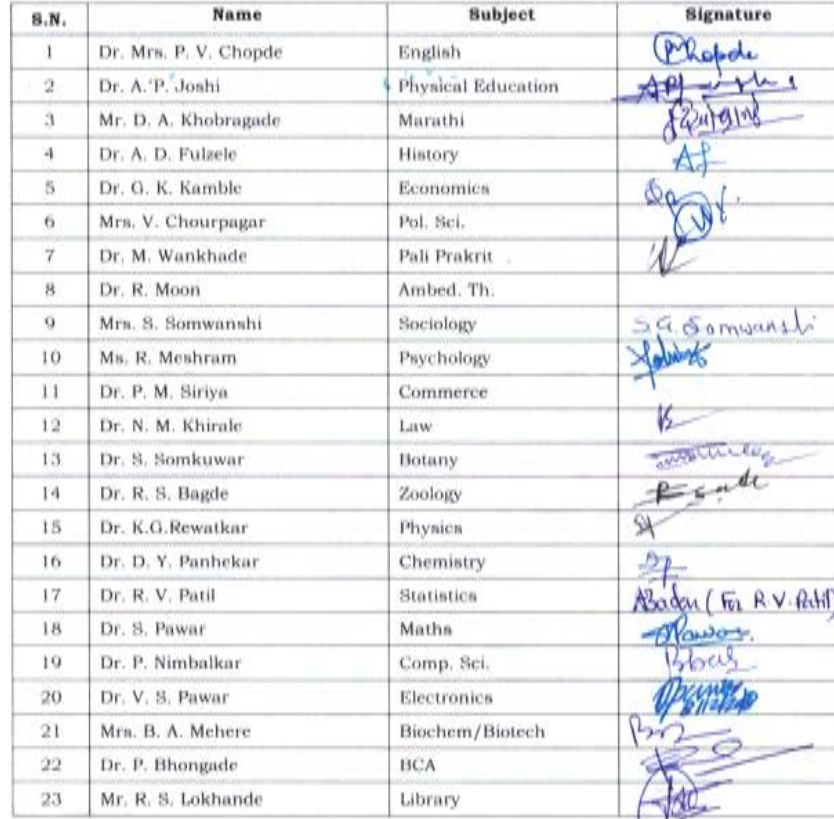 S.N. Name Subject Signature
1 Dr. Mrs. P. V. Chopde English PChopde
2 Dr. A. P. Joshi Physical Education
3 Mr. D. A. Khobragade Marathi
4 Dr. A. D. Fulzele History Af
5 Dr. G. K. Kamble Economics
6 Mrs. V. Chourpagar Pol. Sci.
7 Dr. M. Wankhade Pali Prakrit
8 Dr. R. Moon Ambed. Th.
9 Mrs. S. Somwanshi Sociology S.G. Somwanshi
10 Ms. R. Meshram Psychology
11 Dr. P. M. Siriya Commerce
12 Dr. N. M. Khirale Law
13 Dr. S. Somkuwar Botany
14 Dr. R. S. Bagde Zoology
15 Dr. K.G.Rewatkar Physics
16 Dr. D. Y. Panhekar Chemistry
17 Dr. R. V. Patil Statistics (For R.V. Patil)
18 Dr. S. Pawar Maths
19 Dr. P. Nimbalkar Comp. Sci.
20 Dr. V. S. Pawar Electronics
21 Mrs. B. A. Mehere Biochem/Biotech
22 Dr. P. Bhongade BCA
23 Mr. R. S. Lokhande Library